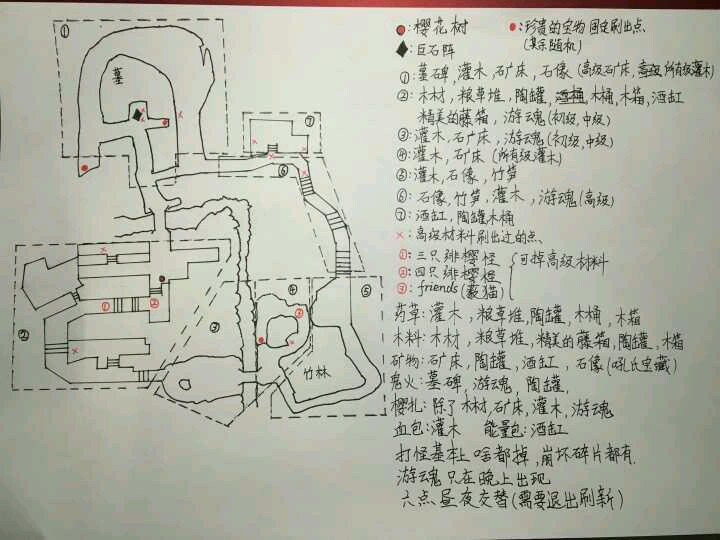 ①
墓
⑦
⑥
②
①
②
③
④
③
⑤
竹林
:樱花树
:珍贵的宝物 固定刷出点
(其余随机)
:巨石阵
①:墓碑,灌木,石矿床,石像(高级石矿床,高级 所有级灌木)
②:木材,粮草堆,陶罐,酒桶,木桶,木箱,酒缸
精美的藤箱,游魂(初级,中级)
③:灌木,石矿床,游魂(初级,中级)
④:灌木,石矿床(所有级灌木)
⑤:灌木,石像,竹笋
⑥:石像,竹笋,灌木,游魂(高级)
⑦:酒缸,陶罐木桶
×:高级材料刷出过的点、
①:三只绯樱怪
②:四只绯樱怪
可掉高级材料
③:friends(薮猫)
药草:灌木,粮草堆,陶罐,木桶,木箱
木料:木材,粮草堆,精美的藤箱,陶罐,木箱
矿物:石矿床,陶罐,酒缸,石像(吼氏宝藏)
鬼火:墓碑,游魂,陶罐,
樱札:除了木材,矿床,灌木,游魂
血包:灌木 能量包:酒缸
打怪基本上啥都掉,崩坏碎片都有.
游魂只在晚上出现
六点昼夜交替(需要退出刷新)